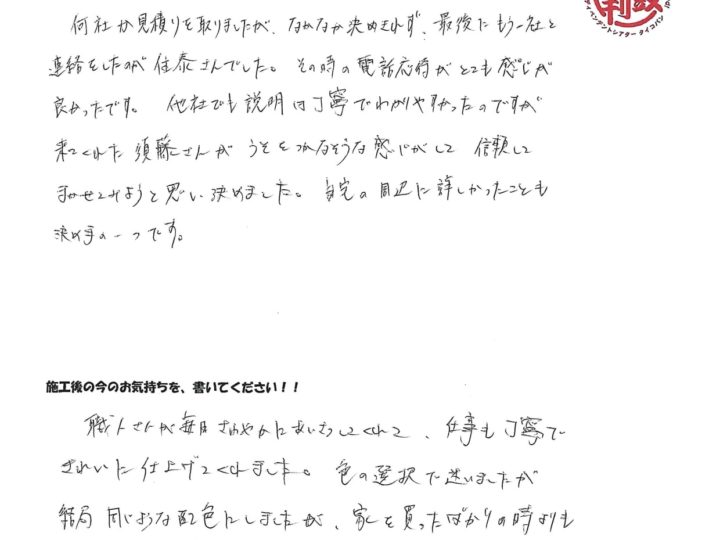 何社か見積りを取りましたが、なかなか決めきれず、最後にもう一社と
連絡をしたのが住泰さんでした。その時の電話応待がとても感じが
良かったです。他社でも説明は丁寧でわかりやすかったのですが
来てくれた須藤さんがうそをつかなそうな感じがして信頼して
まかせてみようと思い決めました。自宅の周辺に詳しかったことも
決め手の一つです。
施工後の今のお気持ちを、書いてください!!
職人さんが毎日さわやかにあいさつしてくれて、仕事も丁寧で
きれいに仕上げてくれました。色の選択で迷いましたが
結局同じような配色にしましたが、家を買ったばかりの時よりも